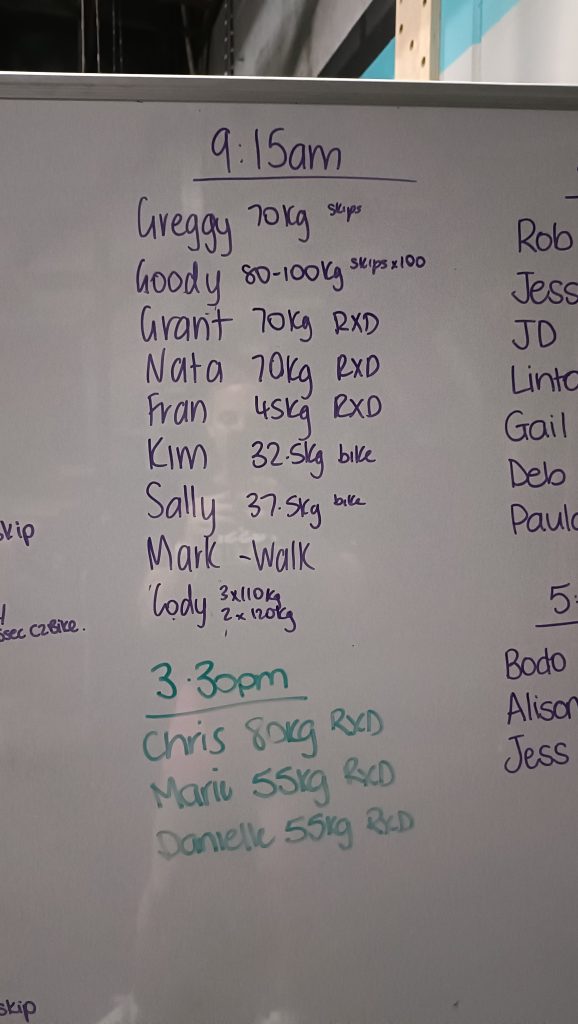 9:15am
Greggy 70kg skips
Goody 80-100kg skips x100
Grant 70kg RXD
Nata 70kg RXD
Fran 45kg RXD
Kim 32.5kg bike
Sally 37.5kg bike
Mark - Walk
Cody 3x110kg
2x120kg
3.30pm
Chris 80kg RXD
Marie 55kg RXD
Danielle 55kg RXD
skip
sec C2Bike.
skip
Rob
Jess
JD
Gail
Deb
5:
Bodo
Alison
Jess